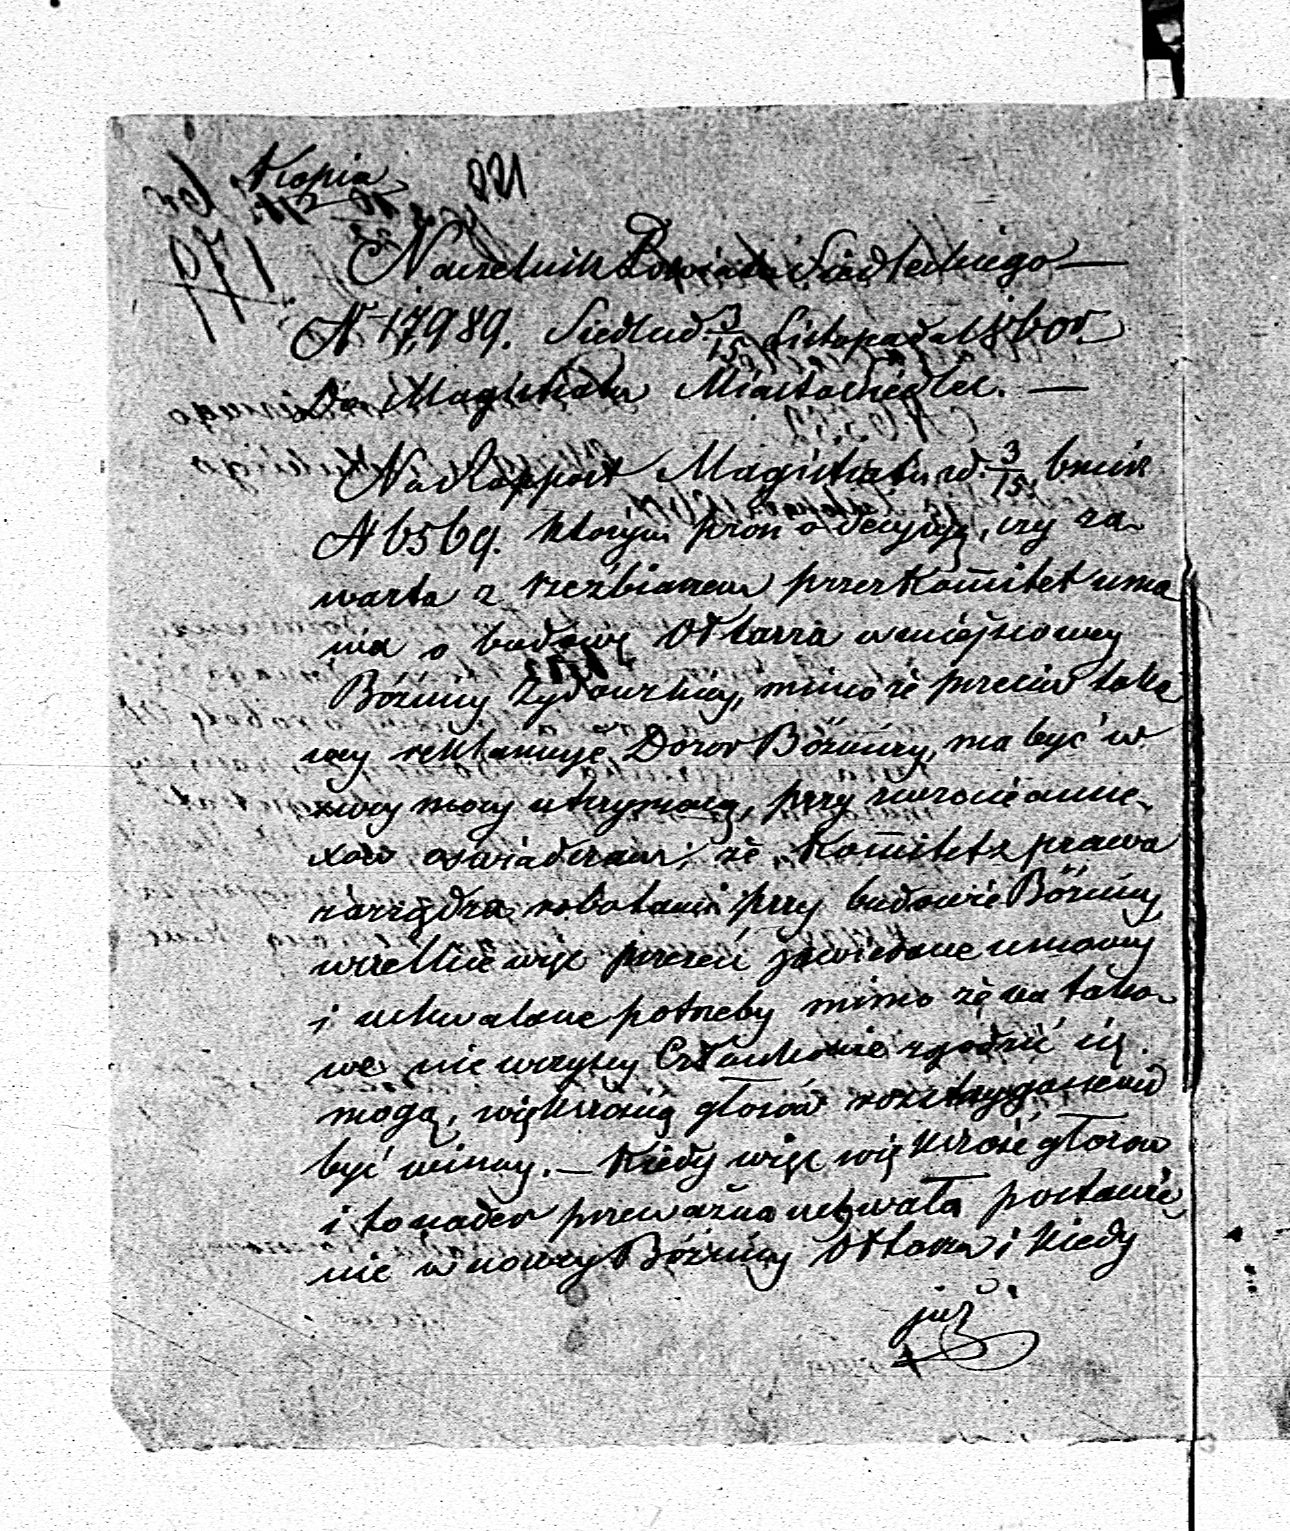 Kopia
Naczelnik Powiatu Siedleckiego —
N 17,989. Siedlce d. 3/15 Listopada 1860 r.
Do Magistratu Miasta Siedlec. —
Na Rapport Magistratu z d. 3/15 b. m i r
N 6569. którym prosi o decyzyą, czy za-
warta z rzeźbiarzem przez Komitet umo
wa o budowę Ołtarza w miejscowey
Bóźnicy Żydowskiey, mimo że przeciw tako
wey reklamuje Dozor Bóźniczy, ma być w
swey mocy utrzymaną, przy zwrocie anne-
xów oświadczam; że, Komitet z prawa
zarządza robotami przy budowie Bóźnicy
wszelkie więc przezeń zawiedane umowy
i uchwalane potrzeby mimo że na tako-
we nie wszyscy Członkowie zgodzić się
mogą, większością głosów rozstrzygane
być winny. — Kiedy więc większość głosów
i to nader przeważna uchwała postawie
nie w nowey Bóźnicy Ołtarza i kiedy
już